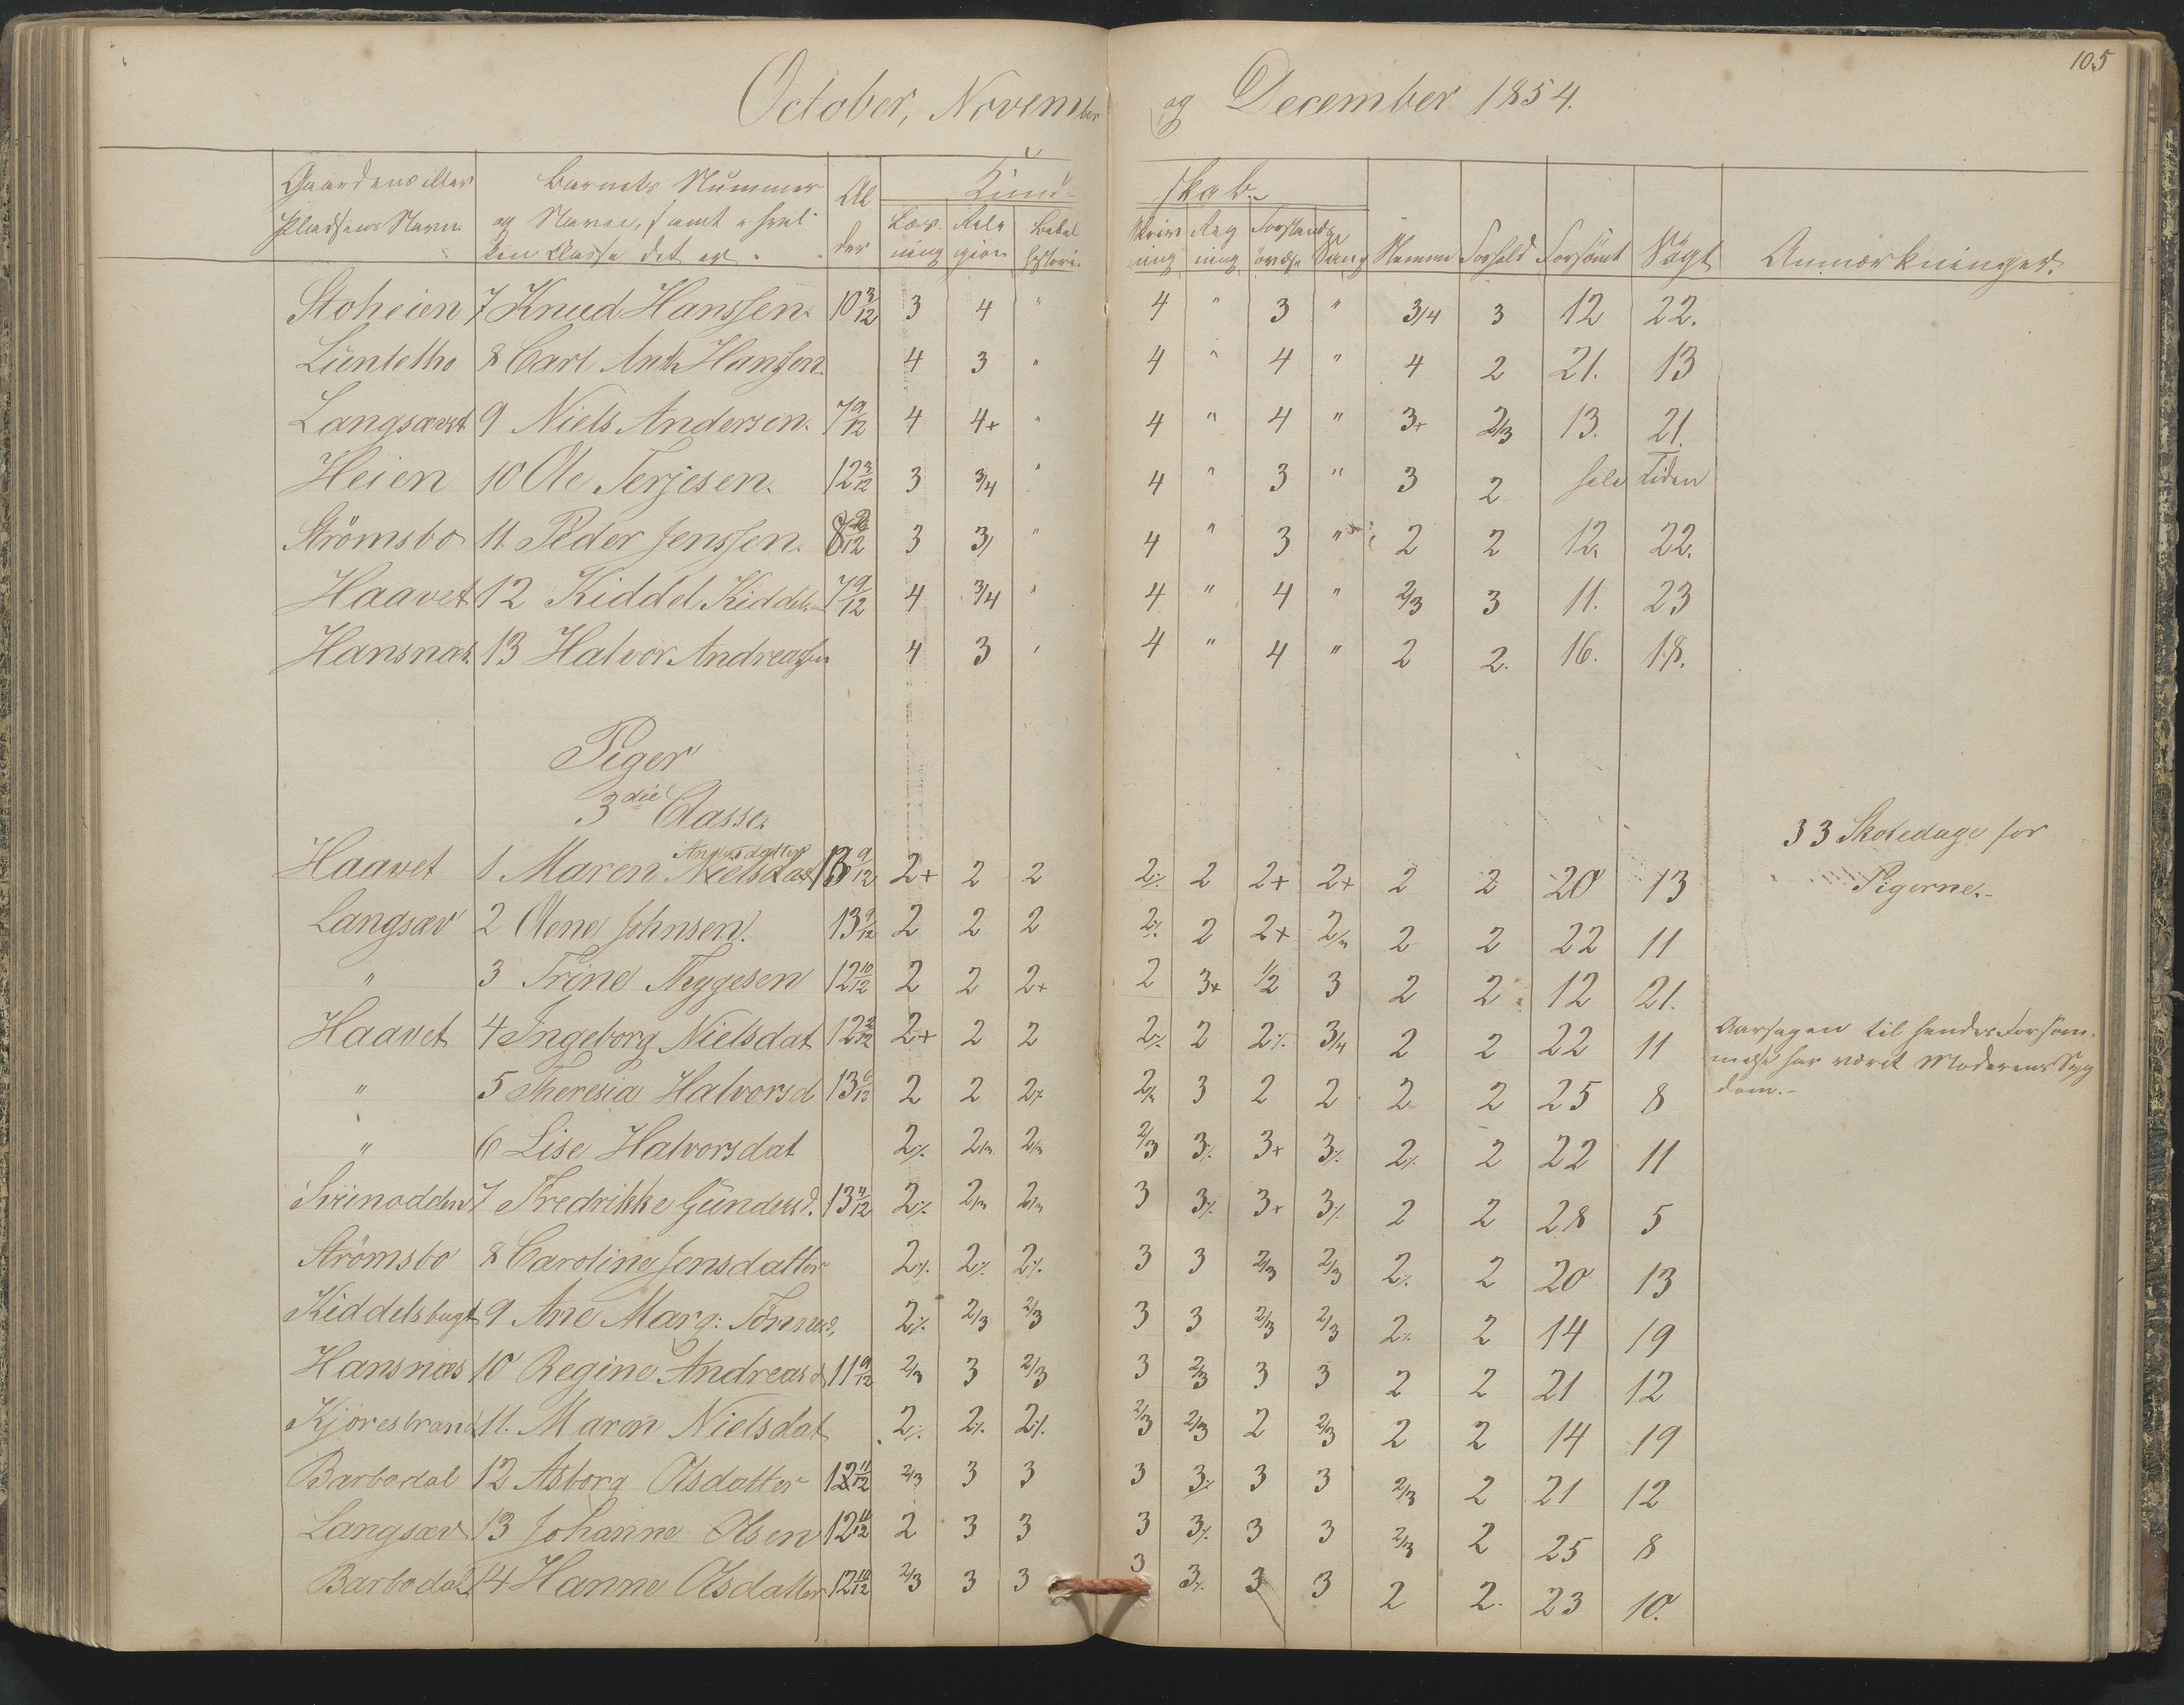 105
October, November og December 1854.
Gaardens eller Pladsens Navn
Barnets Nummer og Navn, samt i hvilken Classe det er.
Alder
Kundskab.
Læsning Religion Bibelhistorie Skrivning Regning Forstandsøvelse Sang Nemme Forhold Forsömt Sögt Anmærkninger.
Stoheien 7 Knud Hanssen. 10 3/12 3 4 " 4 " 3 " 3/4 3 12 22.
8 Carl Anth Hanssen. 4 3 " 4 " 4 " 4 2 21. 13
9 Niels Andersen. 7 9/12 4 4+ " 4 " 4 " 3+ 2/3 13. 21.
Heien 10 Ole Terjesen. 12 3/12 3 3/4 " 4 " 3 " 3 2 hele Tiden
Strömsbo 11 Peder Jenssen. 3 3/ " 4 " 3 " 2 2 12. 22.
Haavet 12 Kiddel Kiddels 7 9/12 4 3/4 " 4 " 4 " 2/3 3 11. 23
Hansnæs 13 Halvor Andreassen 4 3 " 4 " 4 " 2 2. 16. 18.
Piger
3die Classe.
33 Skoledage for
Andersdatter
Haavet 1 Maren Nielsdat 13 9/12 2+ 2 2 2% 2 2+ 2+ 2 2 20 13 Pigerne.-
Langsæv 2 Olene Johnsen. 13 9/12 2 2 2 2% 2 2+ 2/3 2 2 22 11
" 3 Trine Thygesen 12 10/12 2 2 2+ 2 3+ 1/2 3 2 2 12 21.
Haavet 4 Ingeborg Nielsdat 2+ 2 2 2% 2 2% 3/4 2 2 22 11 Aarsagen til hendes Forsömmelse har været Moderens Sygdom.-
" 5 Theresia Halvorsd 13 6/12 2 2 2+ 2/3 3 2 2 2 2 25 8
" 6 Lise Halvorsdat 2% 2/3 2/3 2/3 3% 3+ 3% 2% 2 22 11
7 Fredrikke Gundersd. 13 4/12 2% 2/3 2/3 3 3% 3+ 3% 2 2 28 5
Strömsbo 8 Caroline Jensdatter 2% 2% 2% 3 3 2/3 2/3 2% 2 20 13
Kiddelsbugt 9 Ane Marg: Tönnesd. 2% 2/3 2/3 3 3 2/3 2/3 2% 2 14 19
Hansnæs 10 Regine Andreasd 11 9/12 2/3 3 2/3 3 2/3 3 3 2 2 21 12
Kjöresbrand 11. Maren Nielsdat 2% 2% 2% 2/3 2/3 2 2/3 2 2 14 19
Barbodal 12 Asborg Olsdatter 12 11/12 2/3 3 3 3 3% 3 3 2/3 2 21 12
Langsæv 13 Johanne Olsen 12 11/12 2 3 3 3 3% 3 3 2/3 2 25 8
Barbodal 14 Hanne Olsdatter 12 10/12 2/3 3 3 3 3% 3 3 2 2. 23 10.